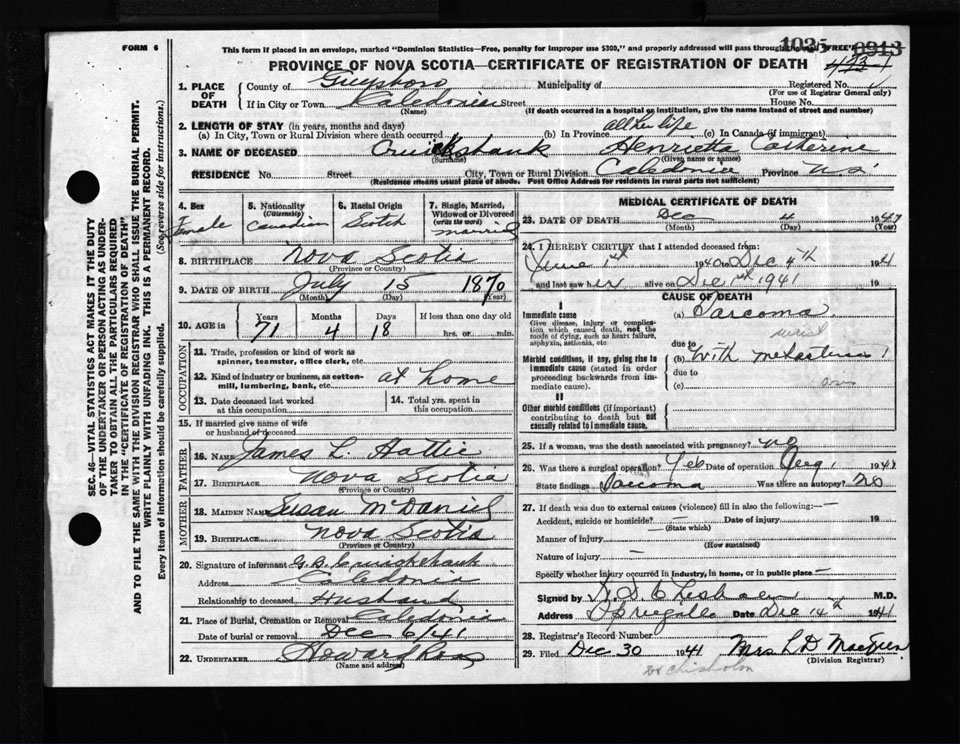 FORM 6
This form if placed in an envelope, marked "Dominion Statistics—Free, penalty for improper use $300," and properly addressed will pass through the mail FREE
1035 0913
PROVINCE OF NOVA SCOTIA—CERTIFICATE OF REGISTRATION OF DEATH
1. PLACE OF DEATH County of Guysboro Municipality of Registered No.
(For use of Registrar General only)
If in City or Town Caledonia Street House No.
(Name) (If death occurred in a hospital or institution, give the name instead of street and number)
2. LENGTH OF STAY (in years, months and days)
(a) In City, Town or Rural Division where death occurred (b) In Province all her life (c) In Canada (if immigrant)
3. NAME OF DECEASED Cruickshank Henrietta Catherine
(Surname) (Given name or names)
RESIDENCE No. Street City, Town or Rural Division Caledonia Province N.S.
(Residence means usual place of abode. Post Office Address for residents in rural parts not sufficient)
4. Sex Female
5. Nationality (Citizenship) Canadian
6. Racial Origin Scotch
7. Single, Married, Widowed or Divorced (write the word) married
8. BIRTHPLACE Nova Scotia
(Province or Country)
9. DATE OF BIRTH July 15 1870
(Month) (Day) (Year)
10. AGE in Years 71 Months 4 Days 18 If less than one day old hrs. or min.
OCCUPATION
11. Trade, profession or kind of work as spinner, teamster, office clerk, etc.
12. Kind of industry or business, as cotton-mill, lumbering, bank, etc. at home
13. Date deceased last worked at this occupation
14. Total yrs. spent in this occupation
15. If married give name of wife or husband of deceased
FATHER
16. NAME James L. Hattie
17. BIRTHPLACE Nova Scotia
(Province or Country)
MOTHER
18. MAIDEN NAME Susan McDaniel
19. BIRTHPLACE Nova Scotia
(Province or Country)
20. Signature of informant G.B. Cruickshank
Address Caledonia
Relationship to deceased Husband
21. Place of Burial, Cremation or Removal Caledonia
Date of burial or removal Dec 6/41
22. UNDERTAKER Howard Ross
(Name and address)
MEDICAL CERTIFICATE OF DEATH
23. DATE OF DEATH Dec 4 1941
(Month) (Day) (Year)
24. I HEREBY CERTIFY that I attended deceased from:
June 1st 1940 to Dec 4th 1941
and last saw her alive on Dec 1st 1941 19
CAUSE OF DEATH
I
Immediate cause
Give disease, injury or complication which caused death, not the mode of dying, such as heart failure, asphyxia, asthenia, etc.
(a) Sarcoma
due to
Morbid conditions, if any, giving rise to immediate cause (stated in order proceeding backwards from immediate cause).
(b) With metastasis
due to
(c)
II
Other morbid conditions (if important) contributing to death but not causally related to immediate cause.
25. If a woman, was the death associated with pregnancy? no
26. Was there a surgical operation? Yes Date of operation Aug 1941
State findings Sarcoma Was there an autopsy? no
27. If death was due to external causes (violence) fill in also the following:—
Accident, suicide or homicide? Date of injury 19
(State which)
Manner of injury
(How sustained)
Nature of injury
Specify whether injury occurred in industry, in home, or in public place
Signed by M.D.
Address Date Dec 14th 1941
28. Registrar's Record Number
29. Filed Dec 30 1941 Mrs L D
(Division Registrar)
Dr Chisholm
SEC. 46—VITAL STATISTICS ACT MAKES IT THE DUTY
OF THE UNDERTAKER OR PERSON ACTING AS UNDERTAKER TO OBTAIN ALL THE PARTICULARS REQUIRED
IN THE "CERTIFICATE OF REGISTRATION OF DEATH"
AND TO FILE THE SAME WITH THE DIVISION REGISTRAR WHO SHALL ISSUE THE BURIAL PERMIT.
WRITE PLAINLY WITH UNFADING INK. THIS IS A PERMANENT RECORD.
Every item of information should be carefully supplied. (See reverse side for instructions.)